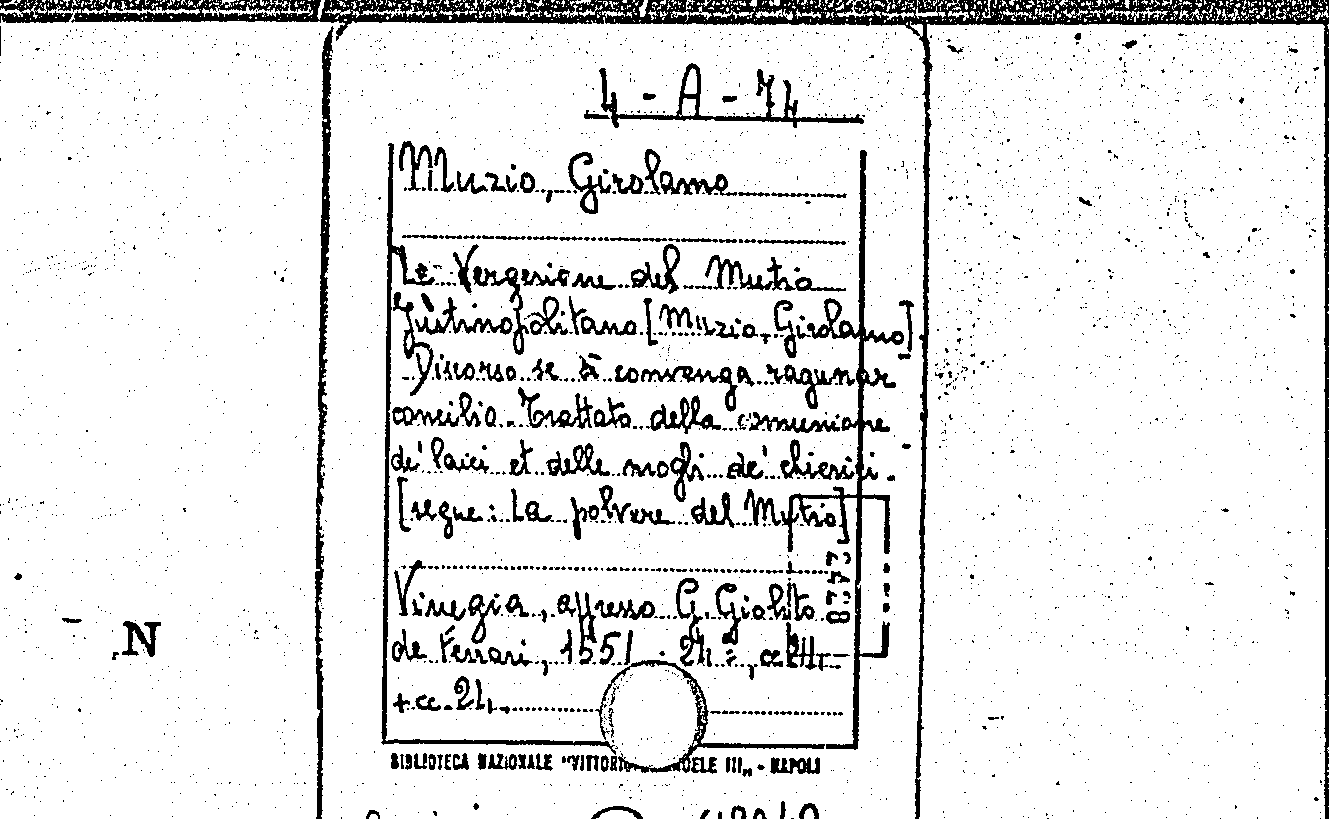 4-A-74
Muzio, Girolamo
Le Vergeriane del Mutio
Justinopolitano [Muzio, Girolamo].
Discorso se si convenga ragunar
concilio. Trattato della comunione
de' laici et delle mogli de' chierici.
[segue: La polvere del Mutio]
2428
Vinegia, appresso G. Giolito
de Ferrari, 1551. 24°,
+ cc. 24.
N
BIBLIOTECA NAZIONALE "VITTORIO III„ - NAPOLI